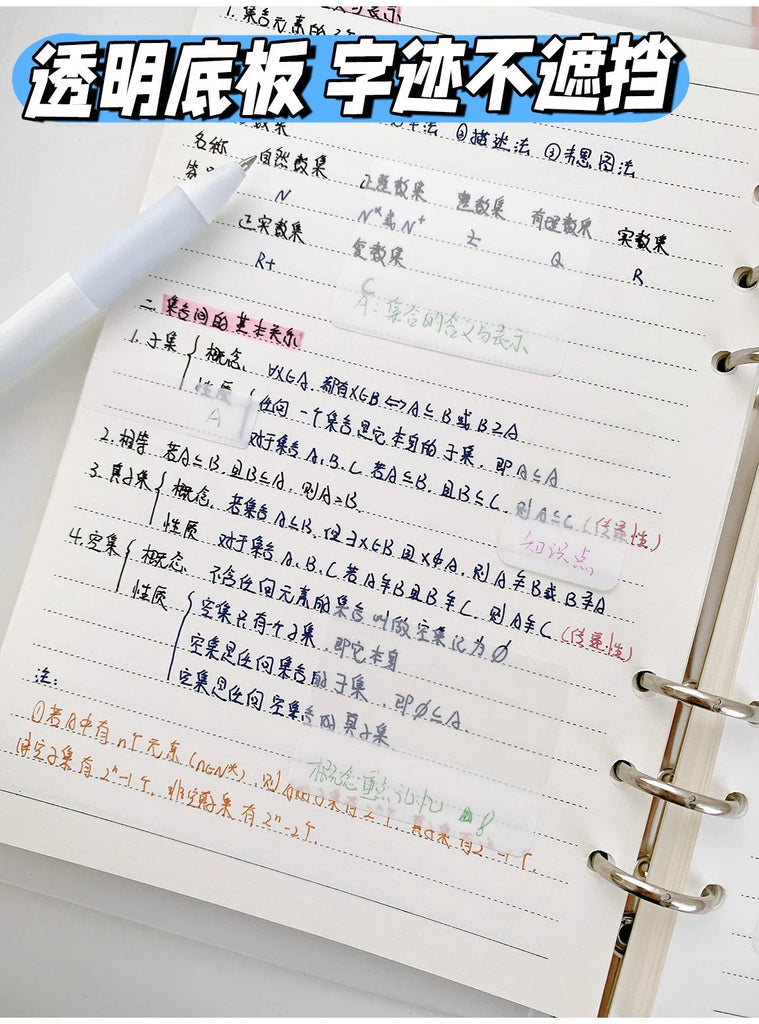 透明底板 字迹不遮挡
1. 集合元素的
②描述法 ③韦恩图法
名称 自然数集 正整数集 整数集 有理数集 实数集
N N*或N⁺ Z Q R
正实数集 复数集
R+ C
A：集合的含义与表示
二、集合间的基本关系
1. 子集 概念、∀x∈A，都有x∈B⇔A⊆B或B⊇A
性质 任何一个集合是它本身的子集，即A⊆A
A
对于集合A.B.C.若A⊆B.且B⊆C，则A⊆C（传递性）
2. 相等 若A⊆B.且B⊆A，则A=B
3. 真子集 概念、若集合A⊆B，但∃x∈B且x∉A，则A⫋B或B⫌A
知识点
性质 对于集合A、B、C若A⫋B且B⫋C，则A⫋C（传递性）
4. 空集 概念、不含任何元素的集合叫做空集记为∅
性质 空集只有个子集，即它本身
空集是任何集合的子集，即∅⊆A
空集是任何空集合的真子集
注：
①若A中有n个元素（n∈N*），则
概念重点记忆
有2ⁿ-1个，非空 集有2ⁿ-2个.